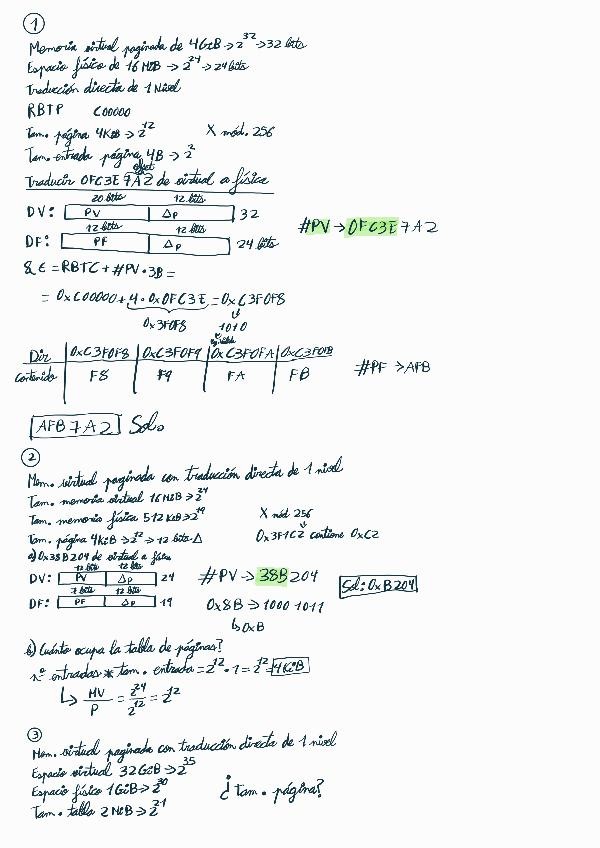 1
Memoria virtual paginada de 4GiB → 2^32 → 32 bits
Espacio físico de 16 MiB → 2^24 → 24 bits
Traducción directa de 1 Nivel
RBTP C00000
Tam. página 4KiB → 2^12 X mód. 256
Tam. entrada página 4B → 2^2
offset
Traducir 0FC3E 7A2 de virtual a física
20 bits 12 bits
DV: PV Δp 32
#PV → 0FC3E 7A2
12 bits 12 bits
DF: PF Δp 24 bits
&E = RBTC + #PV · 3B =
= 0xC00000 + 4 · 0x0FC3E = 0xC3F0F8
0x3F0F8 1010
Dir 0xC3F0F8 0xC3F0F9 0xC3F0FA 0xC3F0FB
Contenido F8 F9 FA FB #PF → AFB
AFB7A2 Sol.
2
Mem. virtual paginada con traducción directa de 1 nivel
Tam. memoria virtual 16MiB → 2^24
Tam. memoria física 512KiB → 2^19 X mód 256
Tam. página 4KiB → 2^12 → 12 bits Δ 0x3F1C2 contiene 0xC2
a) 0x38B204 de virtual a física
12 bits 12 bits
DV: PV Δp 24 #PV → 38B204 Sol: 0xB204
7 bits 12 bits
DF: PF Δp 19 0x8B → 1000 1011
↳ 0xB
b) Cuánto ocupa la tabla de páginas?
nº entradas * tam. entrada = 2^12 · 1 = 2^12 = 4KiB
↳ MV/P = 2^24/2^12 = 2^12
3
Mem. virtual paginada con traducción directa de 1 nivel
Espacio virtual 32GiB → 2^35
Espacio físico 1GiB → 2^30 ¿tam. página?
Tam. tabla 2MiB → 2^21